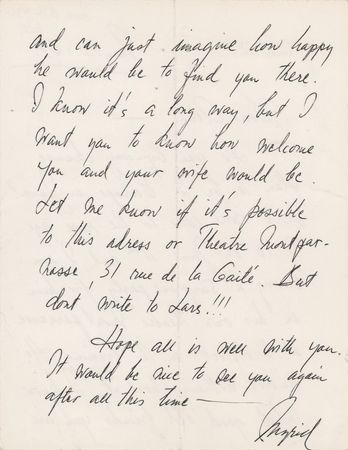 and can just imagine how happy
he would be to find you there.
I know it's a long way, but I
want you to know how welcome
you and your wife would be.
Let me know if it's possible
to this adress or Theatre Montpar-
nasse, 31 rue de la Gaité. But
dont write to Lars!!!
Hope all is well with you.
It would be nice to see you again
after all this time —
Ingrid